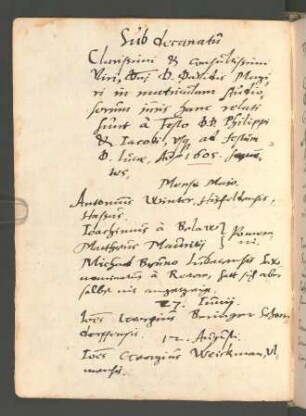 Sub decanatu
Clarissimi & Consultissimi
Viri, Dni D. Davidis Magi
ri in matriculam studio,
sorum iuris hanc relati
sunt à Festo DD. Philippi
& Iacobi, usq; ad festum
D. Lucæ, Aõ 1605. sequen,
tes,
Mense Maio.
Antonius Winter,
Ioachimus à Below } Pomera
Mattheus } ni.
Michael Bruno Lubecensis
nominatus à hatt sich aber
selbs nie angezeigt.
27. Iunij.
Ioēs Georgius Beringer Schorn
dorffensis. 12. Augusti.
Ioēs Georgius Weickman, Ul
mensis.